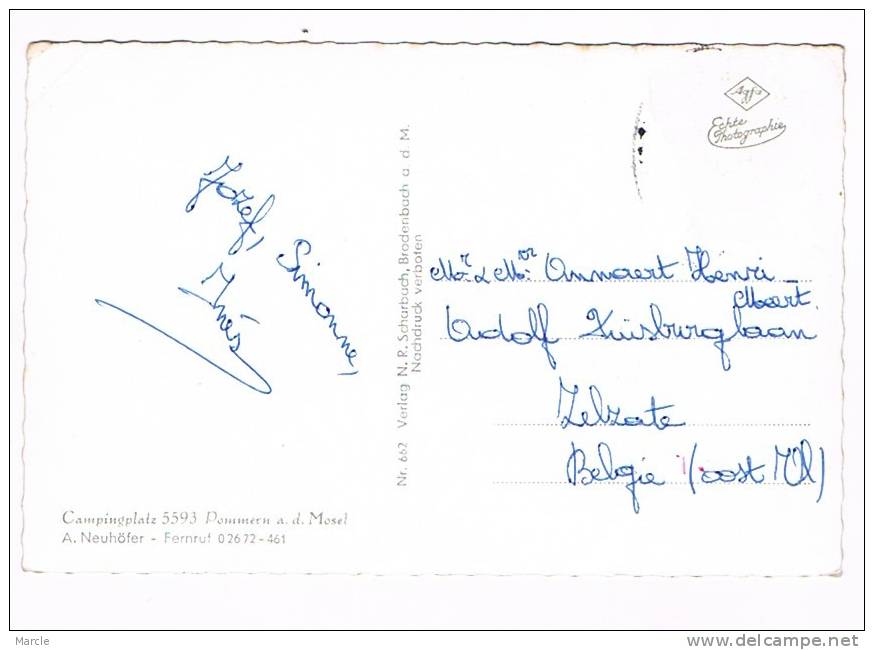 Agfa
Echte
Photographie
Jozef,
Simonne,
Inès
Mr & Mvr Annaert Henri -
Maert.
Adolf Kuisburglaan
Zelzate
Belgie (oost Vl)
Nr. 662 Verlag N. P. Scharbach, Brodenbach a d M.
Nachdruck verboten
Campingplatz 5593 Pommern a. d. Mosel
A. Neuhöfer - Fernruf 02672-461
Marcle
www.delcampe.net